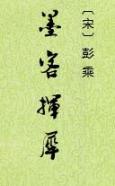 〔宋〕彭乘
墨客揮犀